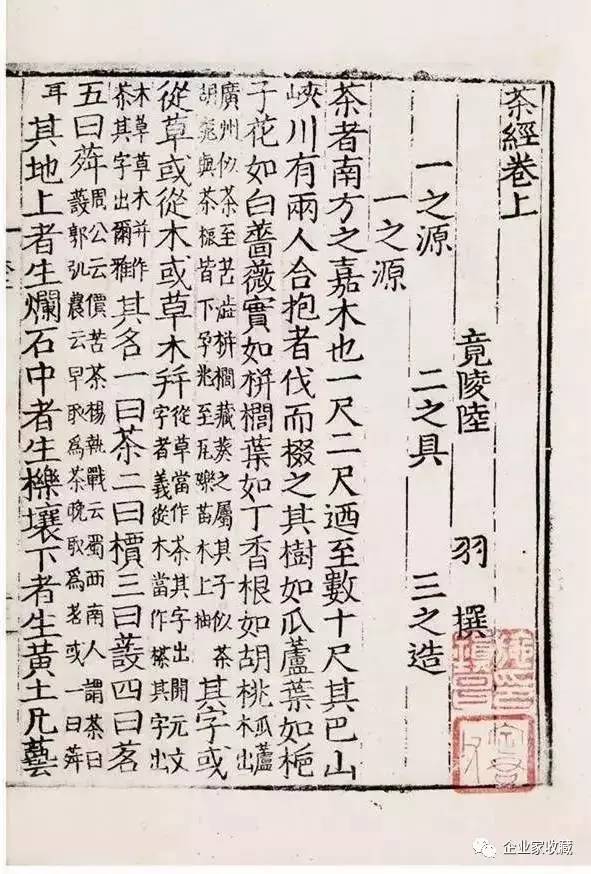 茶經卷上
竟陵陸 羽 撰
一之源 二之具 三之造
一之源
茶者南方之嘉木也一尺二尺迺至數十尺其巴山
峽川有兩人合抱者伐而掇之其樹如瓜蘆葉如梔
子花如白薔薇實如栟櫚葉如丁香根如胡桃瓜蘆木出
廣州似茶至苦澁栟櫚藏葵之屬其子似茶
胡桃與茶根皆下孕兆至瓦礫苗木上抽其字或
從草或從木或草木并從草當作茶其字出開元文
字者義從木當作其字出
木草草木并作
茶其字出爾雅其名一曰茶二曰檟三曰蔎四曰茗
五曰荈周公云價苦茶楊執戰云蜀西南人謂茶曰
蔎郭弘農云早取爲茶晚取爲茗或一曰荈
耳其地上者生爛石中者生櫟壤下者生黃土凡藝
企业家收藏